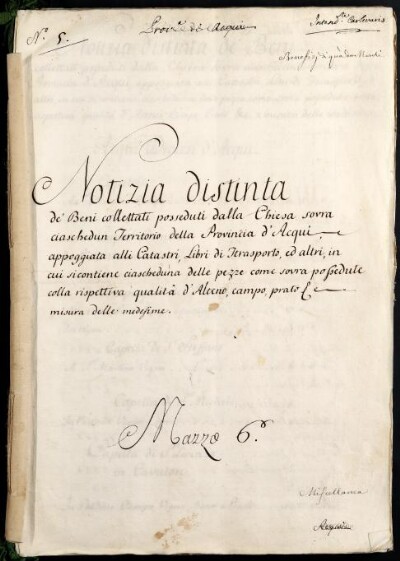 N.º 5.
Prov.ª di Acqui
Benefizj di quà dai Monti
Notizia distinta
de' Beni collettati posseduti dalla Chiesa sovra
ciaschedun Territorio della Provincia d'Acqui
appoggiata alli Catastri, Libri di Trasporto, ed altri, in
cui si contiene ciascheduna delle pezze come sovra possedute
colla rispettiva qualità d'Alteno, campo, prato &
misura delle medesime.
Mazzo 6.º
Miscellanea